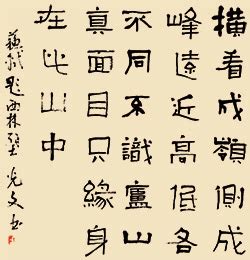 橫看成嶺側成
峰遠近高低各
不同不識廬山
真面目只緣身
在此山中
蘇軾題西林壁 光文